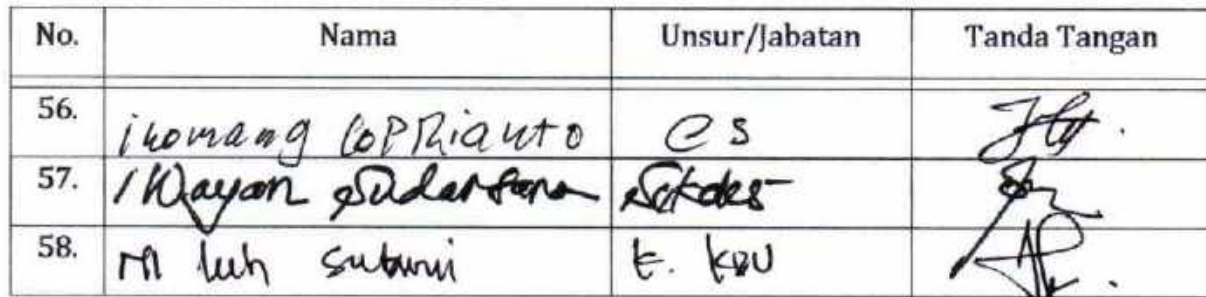 No. Nama Unsur/Jabatan Tanda Tangan
56. i komang CopRianto CS
57. I Wayan Sudarsana Sekdes
58. Ni luh K. KBU